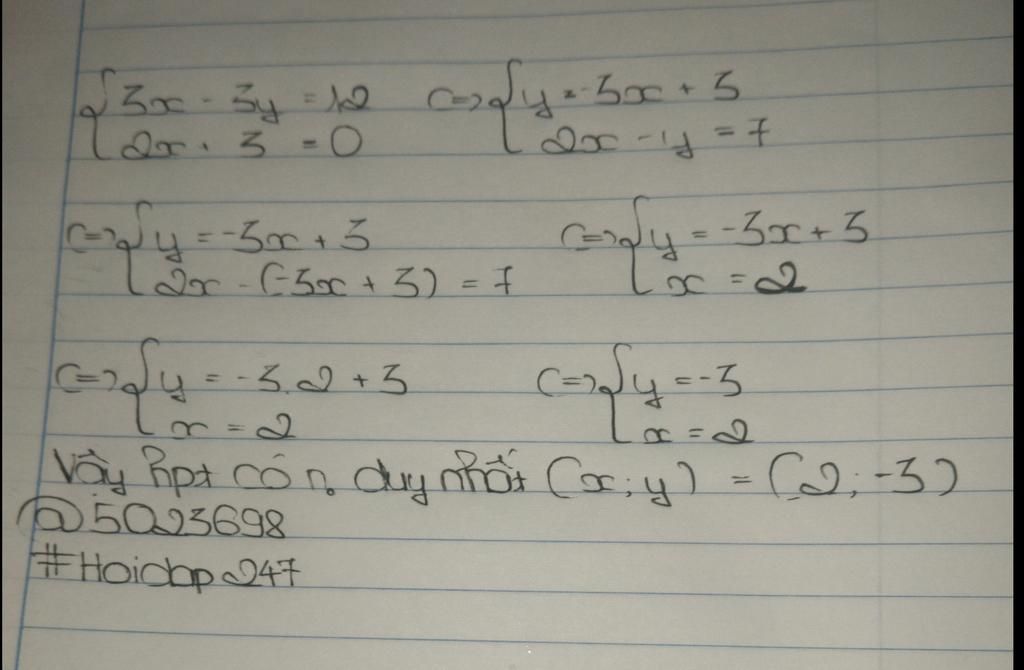 {3x - 3y = 12 <=> {y = -3x + 3
{2x . 3 = 0 {2x - y = 7
<=> {y = -3x + 3 <=> {y = -3x + 3
{2x - (-3x + 3) = 7 {x = 2
<=> {y = -3.2 + 3 <=> {y = -3
{x = 2 {x = 2
Vậy hpt có n0 duy nhất (x;y) = (2;-3)
@5023698
#Hoidap247